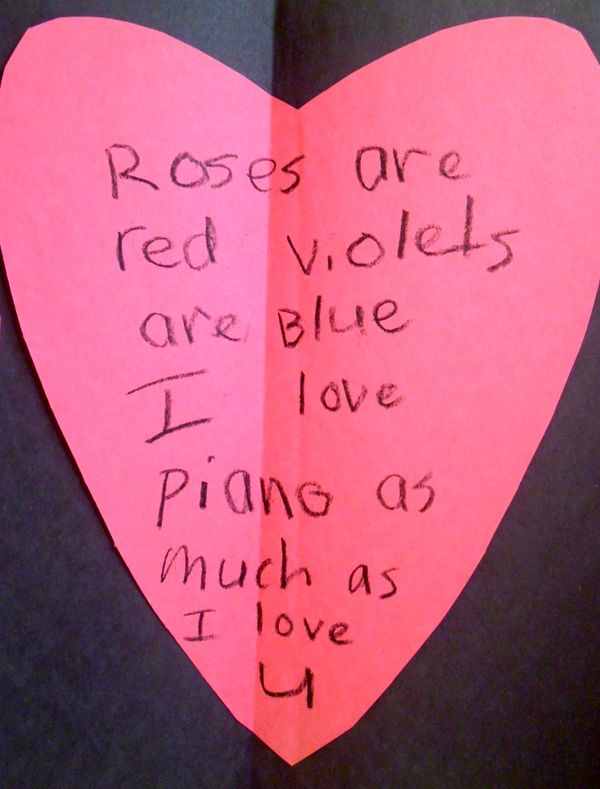 Roses are
red violets
are Blue
I love
piano as
much as
I love
u